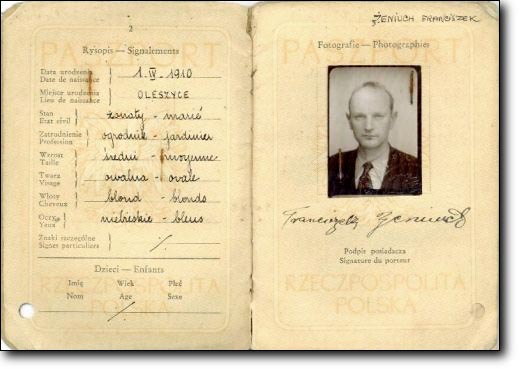 PASZPORT
2
Rysopis — Signalements
Data urodzenia
Date de naissance
1. IV. 1910
Miejsce urodzenia
Lieu de naissance
OLESZYCE
Stan
Etat civil
żonaty - marié
Zatrudnienie
Profession
ogrodnik - jardinier
Wzrost
Taille
średni - moyenne
Twarz
Visage
owalna - ovale
Włosy
Cheveux
blond - blonds
Oczy
Yeux
niebieskie - bleus
Znaki szczególne
Signes particuliers
%
Dzieci — Enfants
Imię Wiek Płeć
Nom Age Sexe
%
RZECZPOSPOLITA
POLSKA
ŻENIUCH FRANCISZEK
PASZPORT
Fotografie — Photographies
Franciszek Żeniuch
Podpis posiadacza
Signature du porteur
RZECZPOSPOLITA
POLSKA